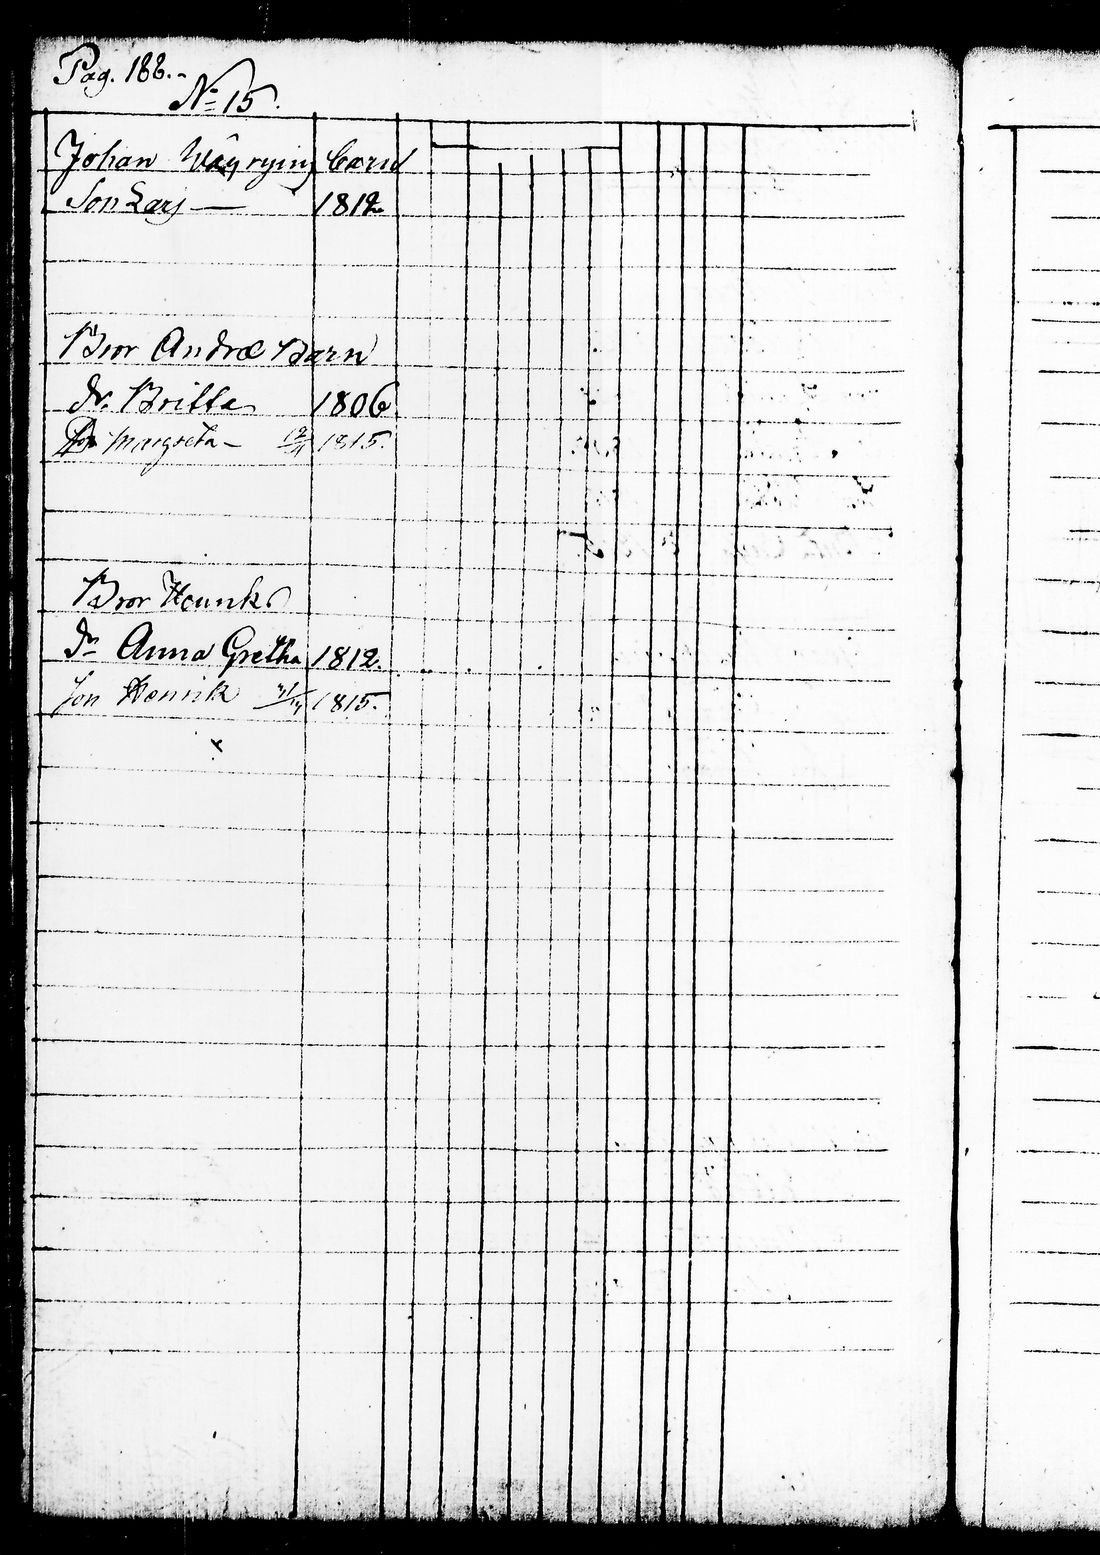 Pag. 188.
No 15.
Johan Wäyrying barn
Son Lars — 1812
Bror Andræ Barn
dr. Britta 1806
Margreta — 1815.
Bror Henriks
dr Anna Gretha 1812.
Son Henrik 1815.